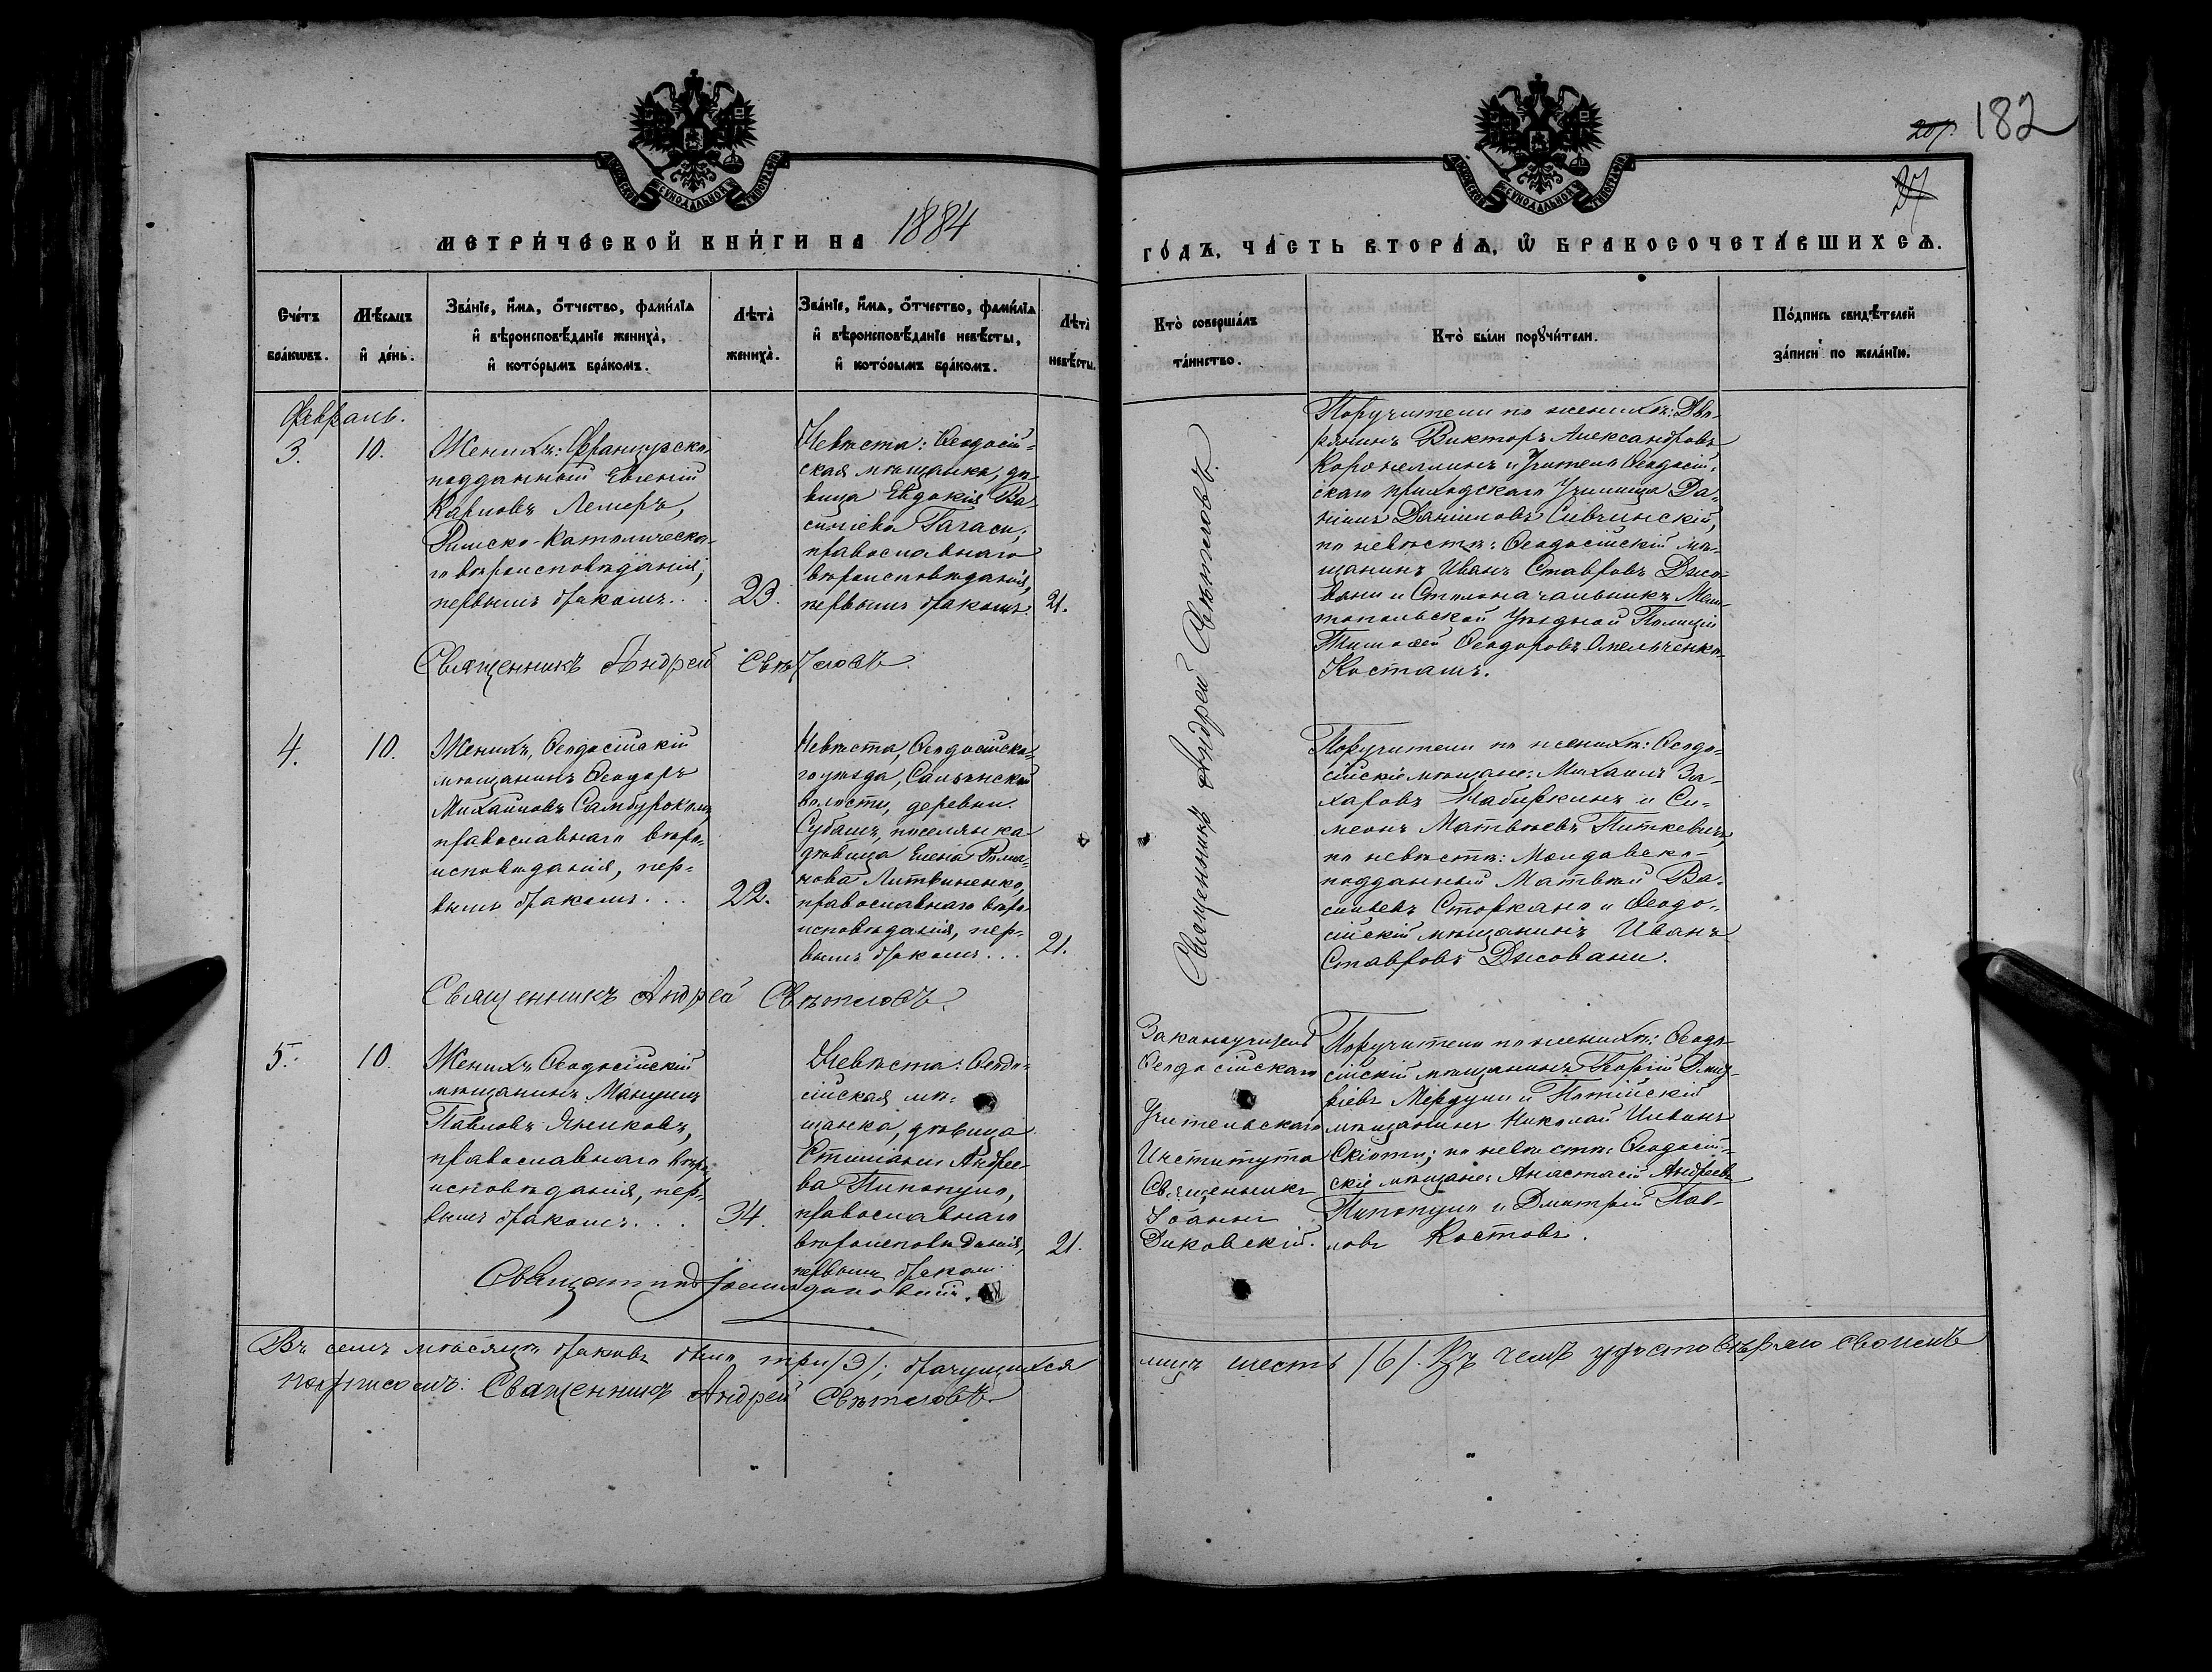 182
МЕТРИ́ЧЕСКОЙ КНИ́ГИ НА 1884
ГО́ДЪ, ЧА́СТЬ ВТОРА́Ѧ, Ѽ БРАКОСОЧЕТА́ВШИХСѦ.
Сче́тъ бра́кѡвъ.
Мѣ́сяцъ и҆ де́нь.
Зва́нїе, и҆́мѧ, ѻ҆́тчество, фами́лїѧ
и҆ вѣроисповѣ́данїе жениха̀,
и҆ кото́рымъ бра́комъ.
Лѣта̀ жениха̀.
Зва́нїе, и҆́мѧ, ѻ҆́тчество, фами́лїѧ
и҆ вѣроисповѣ́данїе невѣ́сты,
и҆ кото́рымъ бра́комъ.
Лѣта̀ невѣ́сты.
Кто̀ соверша́лъ
та́инство.
Кто̀ бы́ли порꙋчи́тели.
По́дпись свидѣ́телей
за́писи по жела́нїю.
Февраль.
3.
10.
Женихъ: Французско-
подданный Евгеній
Карловъ Лемеръ,
Римско-Католическа-
го вѣроисповѣданія,
первымъ бракомъ...
23.
Невѣста: Ѳеодосій-
ская мѣщанка, дѣ-
вица Евдокія Ва-
сильева Гагаси,
православнаго
вѣроисповѣданія,
первымъ бракомъ.
21.
Священникъ Андрей Свѣтловъ.
Поручители по женихѣ: Дво-
рянинъ Викторъ Александровъ
Коронеллинъ и Учитель Ѳеодосій-
скаго приходскаго Училища Да-
ніилъ Даніиловъ Сивчинскій,
по невѣстѣ: Ѳеодосійскій мѣ-
щанинъ Иванъ Ставровъ Джо-
вани и Столоначальникъ Мели-
топольской Уѣздной Полиціи
Тимоѳей Ѳеодоровъ Омельченко-
Косташъ.
Священникъ Андрей Свѣтловъ.
4.
10.
Женихъ, Ѳеодосійскій
мѣщанинъ Ѳеодоръ
Михайловъ
православнаго вѣро-
исповѣданія, пер-
вымъ бракомъ...
22.
Невѣста, Ѳеодосійска-
го уѣзда, Салынской
волости, деревни
Субашъ, поселянка
дѣвица Елена
Литвиненко,
православнаго вѣро-
исповѣданія, пер-
вымъ бракомъ...
21.
Священникъ Андрей Свѣтловъ.
Поручители по женихѣ: Ѳеодо-
сійскіе мѣщане: Михаилъ За-
харовъ Набиркинъ и Си-
меонъ Матвѣевъ Питкевичъ,
по невѣстѣ: Молдавско-
подданный Матвѣй Ва-
сильевъ Сторкано и Ѳеодо-
сійскій мѣщанинъ Иванъ
Ставровъ Джовани.
5.
10.
Женихъ Ѳеодосійскій
мѣщанинъ Мануилъ
Павловъ Яниковъ,
православнаго вѣро-
исповѣданія, пер-
вымъ бракомъ...
34.
Невѣста: Ѳеодо-
сійская мѣ-
щанка, дѣвица
Стиліани Андрее-
ва Пипопуло,
православнаго
вѣроисповѣданія,
первымъ бракомъ
21.
Священникъ Іоаннъ Диковскій.
Законоучитель
Ѳеодосійскаго
Учительскаго
Института
Священникъ
Іоаннъ
Диковскій.
Поручители по женихѣ: Ѳеодо-
сійскій мѣщанинъ Георгій
Мердули и Потійскій
мѣщанинъ Николай
Скіоти; по невѣстѣ: Ѳеодосій-
скіе мѣщане: Анастасій Андреевъ
Пипопуло и Дмитрій Пав-
ловъ Костовъ.
Въ семъ мѣсяцѣ браковъ было три /3/; брачущихся
лицъ шесть /6/. Въ чемъ удостовѣряю своимъ
подписомъ: Священникъ Андрей Свѣтловъ.